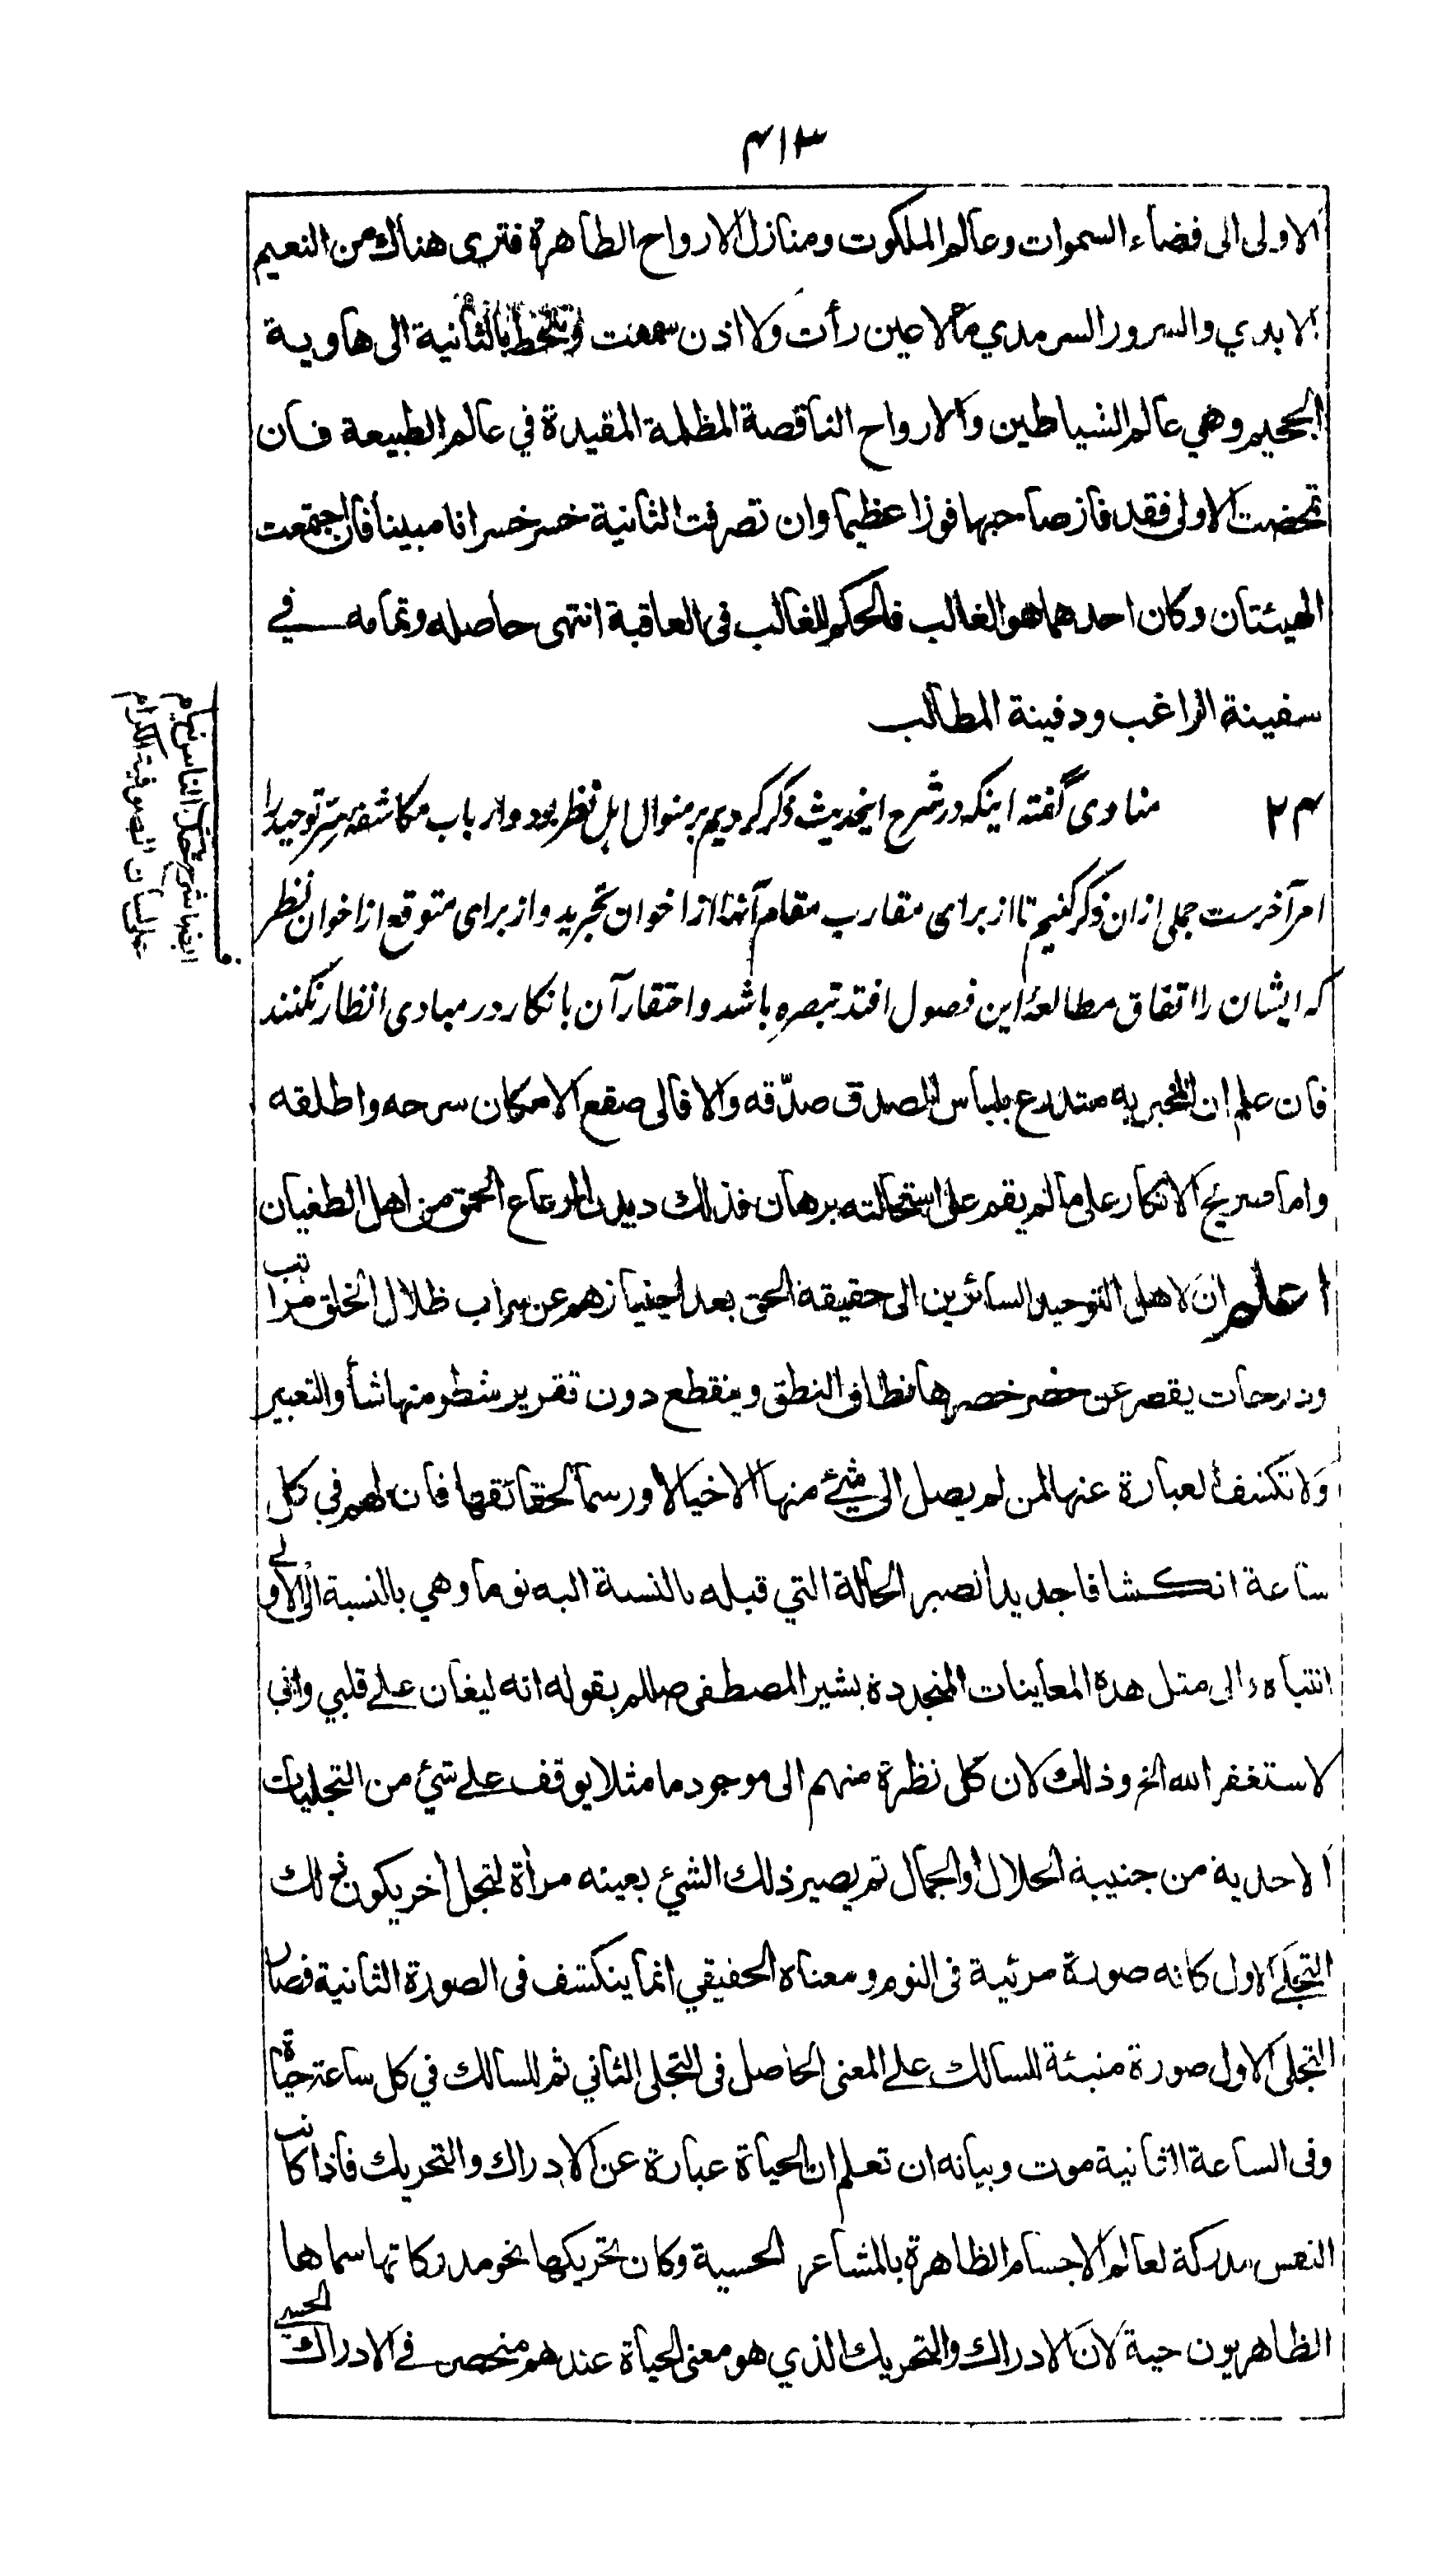 ۴۱۳
الاولى الى فضاء السموات وعالم الملكوت ومنازل الارواح الطاهرة فترى هناك من النعيم
الابدي والسرور السرمدي مالا عين رأت ولا اذن سمعت وتنحط بالثانية الى هاوية
الجحيم وهي عالم الشياطين والارواح الناقصة المظلمة المقيدة في عالم الطبيعة فان
تمحضت الاولى فقد فاز صاحبها فوزا عظيما وان تصرفت الثانية خسر خسرانا مبينا فان اجتمعت
الهيئتان وكان احدهما هو الغالب فالحكم للغالب في العاقبة انتهى حاصله وتمامه في
سفينة الراغب ودفينة المطالب
۲۴ مناوی گفته اینکه در شرح اینحدیث ذکر کردیم بر منوال اهل نظر بود وارباب مکاشفه سر توحید را
امر آخرست جملی ازان ذکر کنیم تا از برای مقارب مقام آنها از اخوان تجرید واز برای متوقع از اخوان نظر
که ایشان را اتفاق مطالعهٔ این فصول افتد تبصره باشد واحتقار آن بانکار در مبادی انظار نکنند
فان علم ان المخبر به متدرع بلباس الصدق صدّقه والا فالى صقع الامكان سرحه واطلقه
واما صريح الانكار على مالم يقم على استحالته برهان فذلك ديدن الرعاع الحمق من اهل الطغيان
اعلم ان لاهل التوحيد السائرين الى حقيقة الحق بعد اجتيازهم عن سراب ظلال الخلق مراتب
ودرجات يقصر عن حصر خصرها نطاق النطق وينقطع دون تقرير شطر منها شأو التعبير
ولا تكشف العبارة عنها لمن لم يصل الى شيئ منها الا خيالا ورسما لحقائقها فان لهم في كل
ساعة انكشافا جديدا تصير الحالة التي قبله بالنسبة اليه نوما وهي بالنسبة الى الاولى
انتباه والى مثل هذه المعاينات المتجددة يشير المصطفى صللم بقوله انه ليغان على قلبي واني
لاستغفر الله الخ وذلك لان كل نظرة منهم الى موجود ما مثلا يوقف على شيء من التجليات
الاحدية من جنيبة الجلال أو الجمال ثم يصير ذلك الشيء بعينه مرأة لتجل أخر يكون ذلك
التجلى الاول كانه صورة مرئية في النوم ومعناه الحقيقي انما ينكشف في الصورة الثانية فصار
التجلى الاول صورة منبئة للسالك على المعنى الحاصل في التجلى الثاني ثم للسالك في كل ساعة حياة
وفى الساعة الثانية موت وبيانه ان تعلم ان الحياة عبارة عن الادراك والتحريك فاذا كانت
النفس مدركة لعالم الاجسام الظاهرة بالمشاعر الحسية وكان تحريكها نحو مدركاتها سماها
الظاهريون حية لان الادراك والتحريك الذي هو معنى الحياة عندهم منحصر في الادراك الحسي
ايضا شرح الناس نيام
على لسان الصوفية الكرام